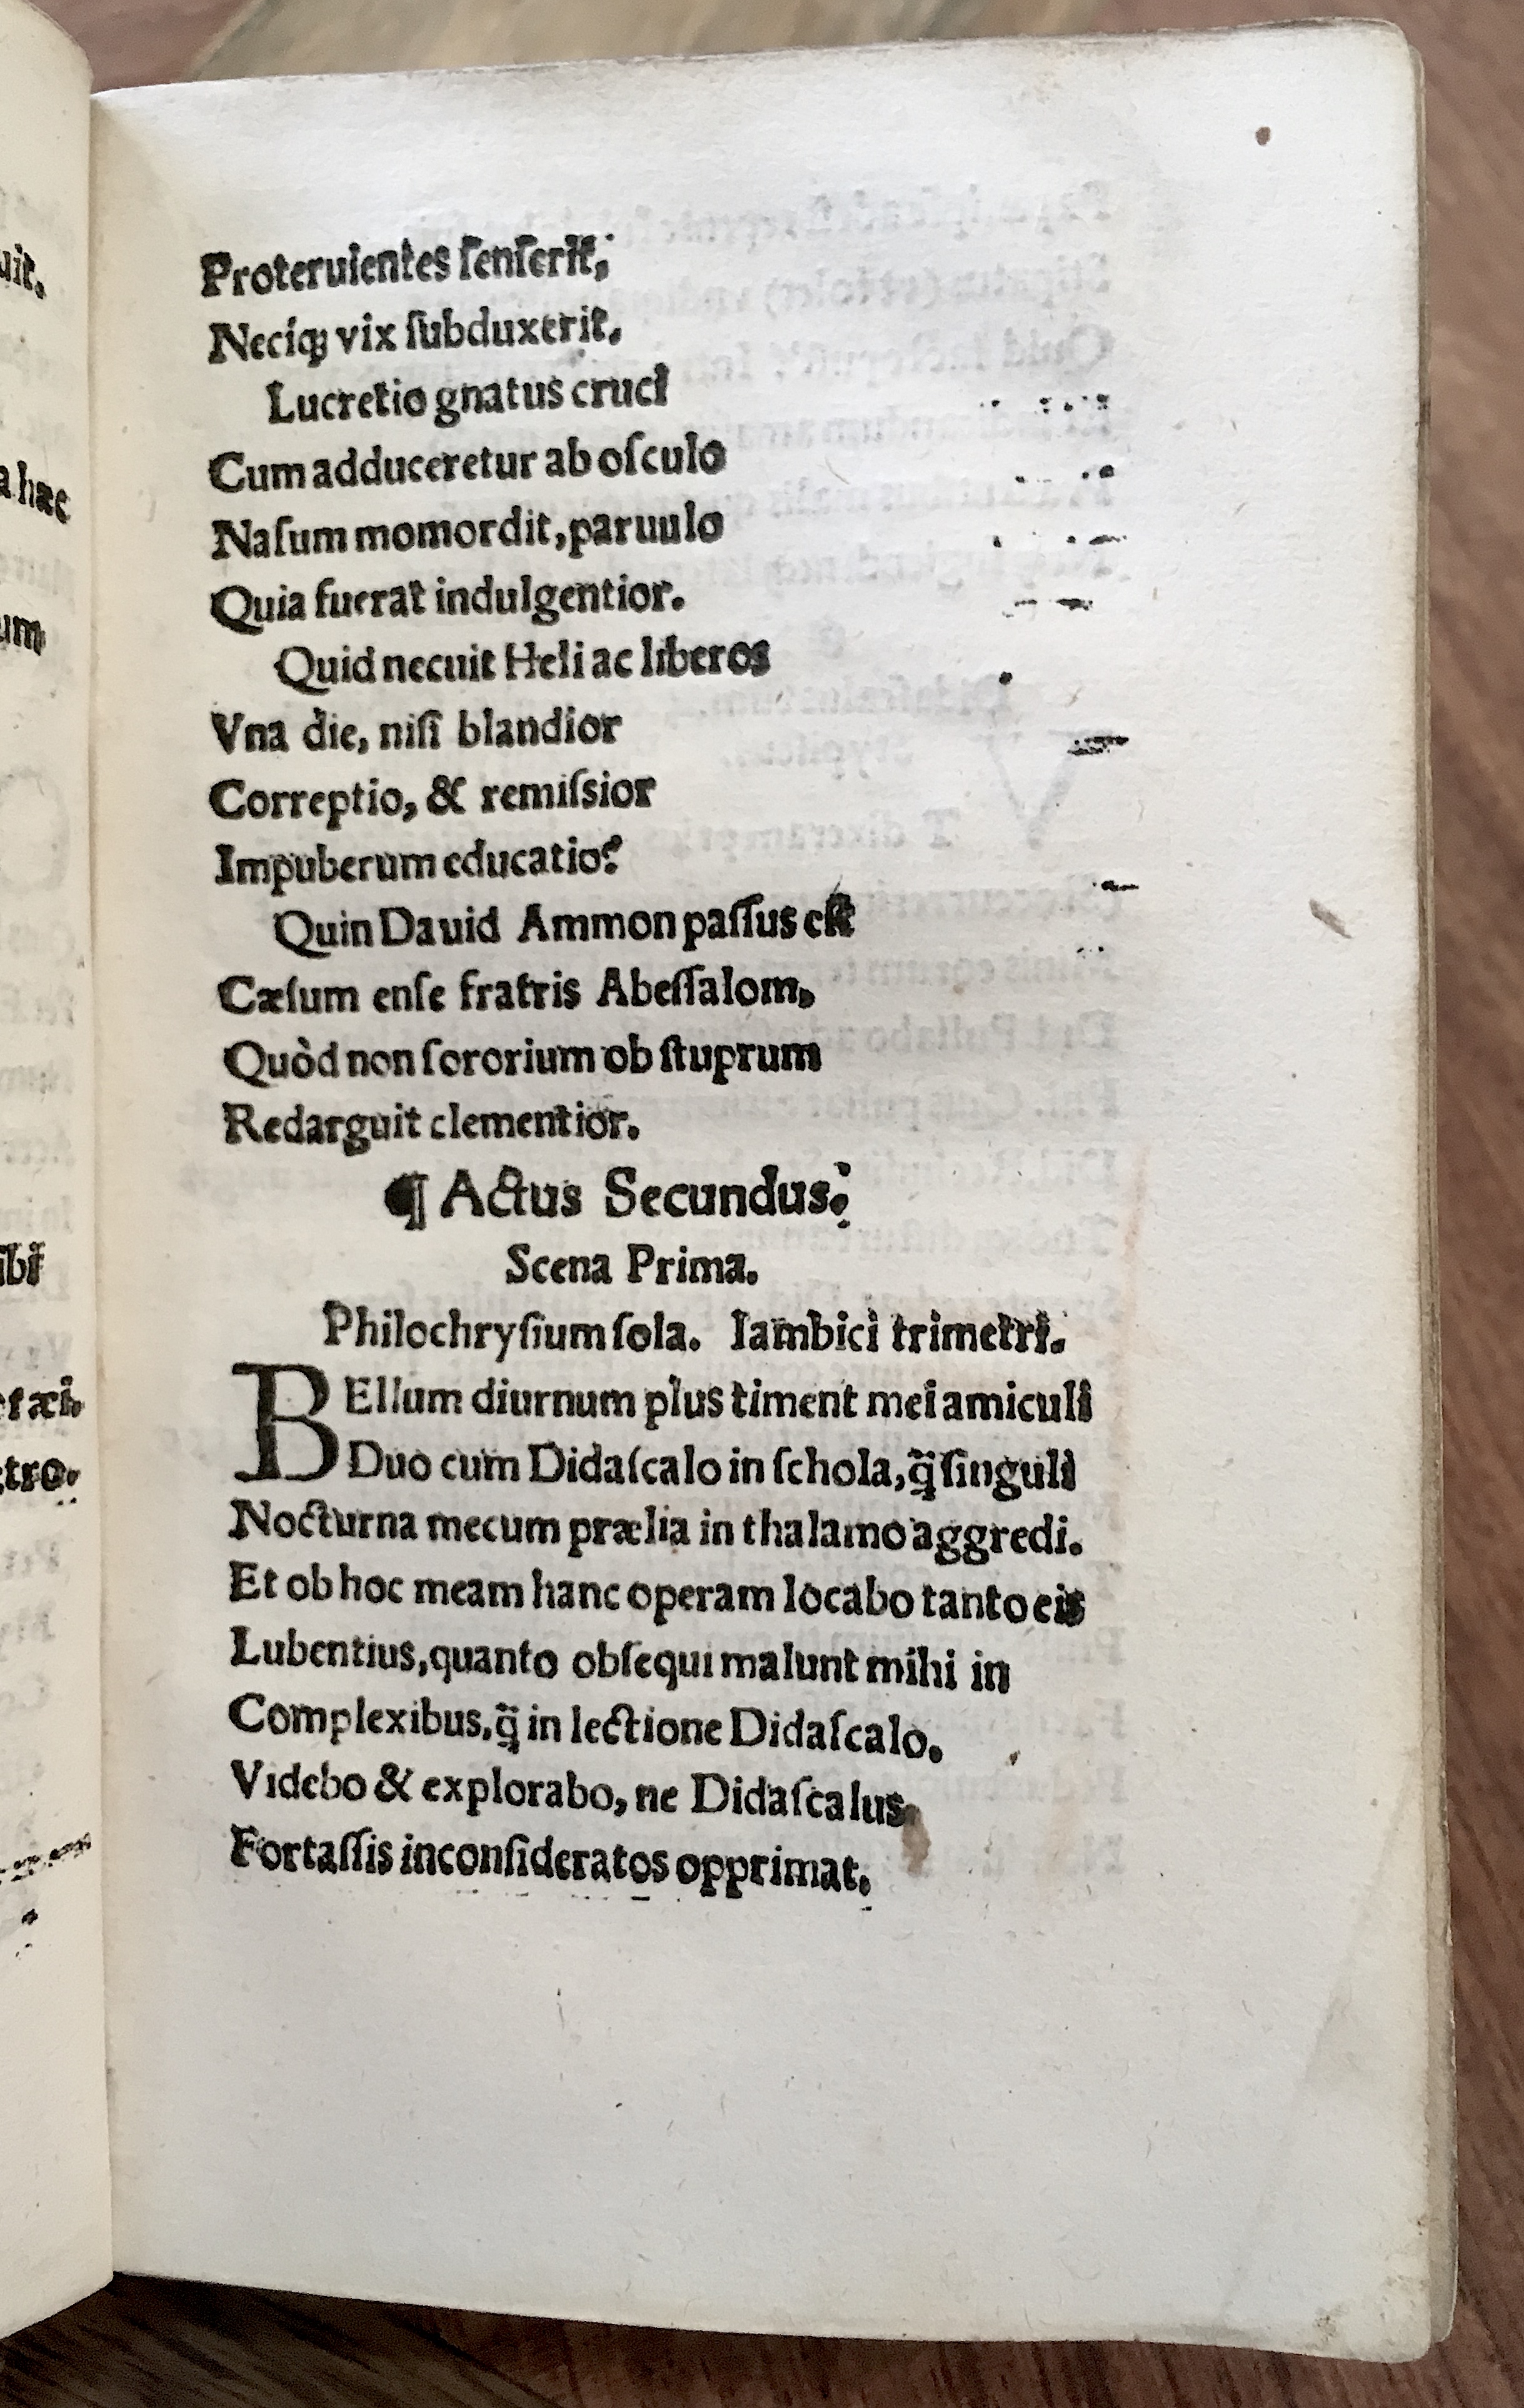 Proteruientes ſenſerit,
Neciqꝫ vix ſubduxerit.
Lucretio gnatus cruci
Cum adduceretur ab oſculo
Naſum momordit, paruulo
Quia fuerat indulgentior.
Quid necuit Heli ac liberos
Vna die, niſi blandior
Correptio, & remiſsior
Impuberum educatio?
Quin Dauid Ammon paſſus eſt
Cæſum enſe fratris Abeſſalom,
Quòd non ſororium ob ſtuprum
Redarguit clementior.
¶ Actus Secundus.
Scena Prima.
Philochryſium ſola. Iambici trimetri.
BEllum diurnum plus timent mei amiculi
Duo cum Didaſcalo in ſchola, q̈̃ ſinguli
Nocturna mecum prælia in thalamo aggredi.
Et ob hoc meam hanc operam locabo tanto eis
Lubentius, quanto obſequi malunt mihi in
Complexibus, q̈̃ in lectione Didaſcalo.
Videbo & explorabo, ne Didaſcalus
Fortaſſis inconſideratos opprimat.
uit.
a hæc
um
ibi
tro.